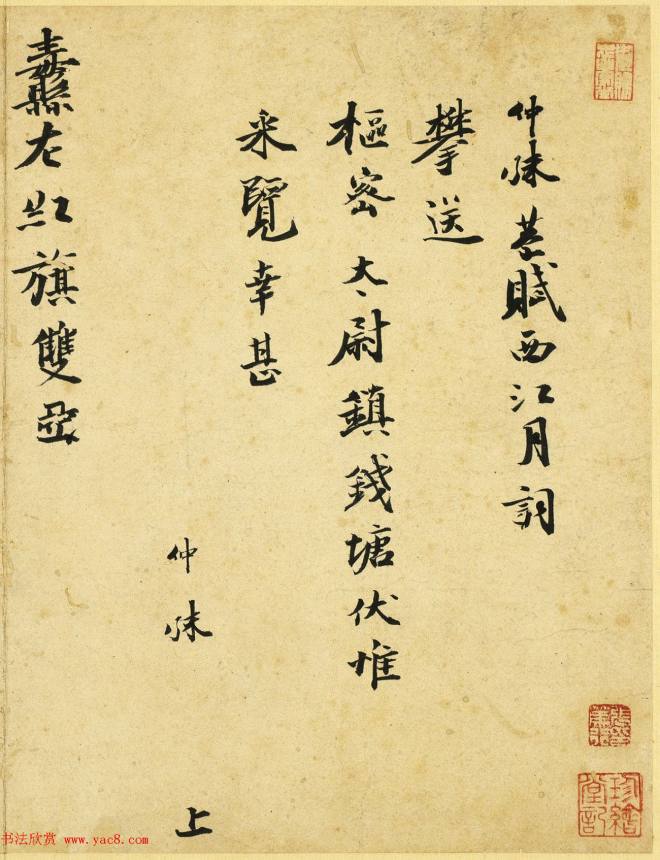 仲殊恭賦西江月詞
攀送
樞密太尉鎮錢塘伏惟
采覽幸甚
仲殊 上
纛左紅旗雙亞
珍繪堂記
书法欣赏 www.yac8.com